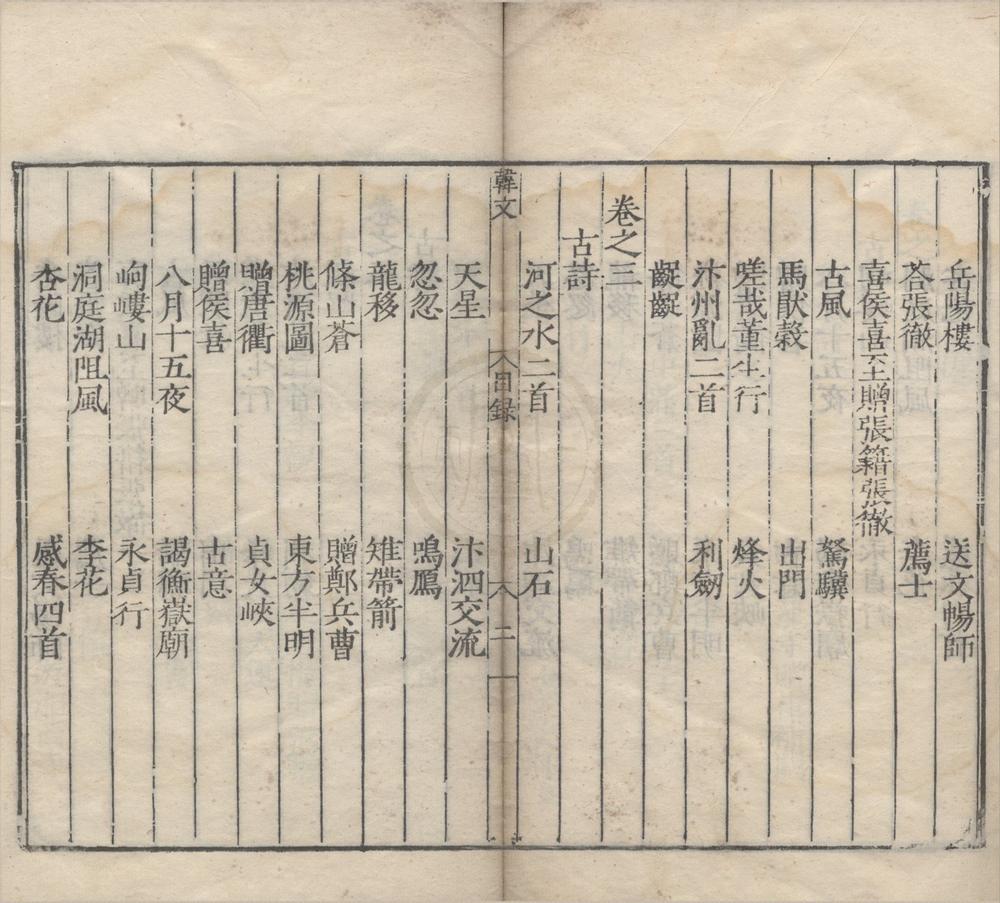 岳陽樓　送文暢師
荅張徹　薦士
喜侯喜至贈張籍張徹
古風　駑驥
馬猒穀　出門
嗟哉董生行　烽火
汴州亂二首　利劒
齪齪
卷之三
古詩
河之水二首　山石
韓文　目録　二
天星　汴泗交流
忽忽　鳴鴈
龍移　雉帶箭
條山蒼　贈鄭兵曹
桃源圖　東方半明
贈唐衢　貞女峽
贈侯喜　古意
八月十五夜　謁衡嶽廟
岣嶁山　永貞行
洞庭湖阻風　李花
杏花　感春四首